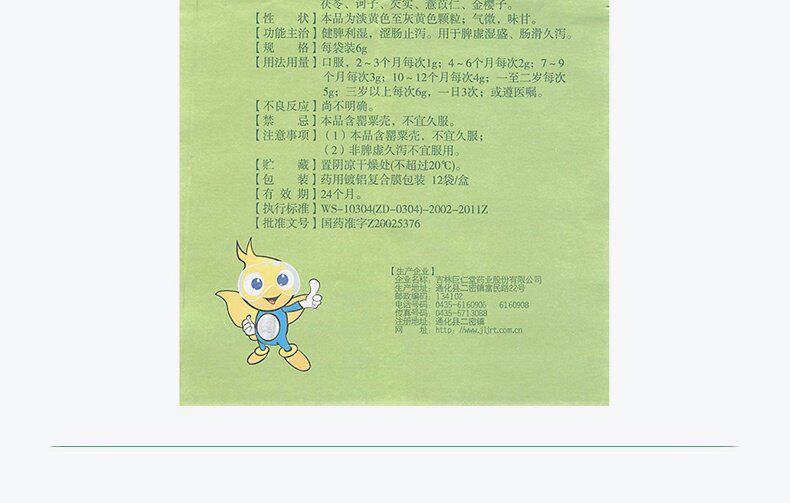 茯苓、诃子、芡实、薏苡仁、金樱子。
【性　　状】本品为淡黄色至灰黄色颗粒；气微，味甘。
【功能主治】健脾利湿，涩肠止泻。用于脾虚湿盛、肠滑久泻。
【规　　格】每袋装6g
【用法用量】口服，2～3个月每次1g；4～6个月每次2g；7～9
个月每次3g；10～12个月每次4g；一至二岁每次
5g；三岁以上每次6g，一日3次；或遵医嘱。
【不良反应】尚不明确。
【禁　　忌】本品含罂粟壳，不宜久服。
【注意事项】（1）本品含罂粟壳，不宜久服；
（2）非脾虚久泻不宜服用。
【贮　　藏】置阴凉干燥处(不超过20℃)。
【包　　装】药用镀铝复合膜包装 12袋/盒
【有 效 期】24个月。
【执行标准】WS-10304(ZD-0304)-2002-2011Z
【批准文号】国药准字Z20025376
【生产企业】
企业名称：吉林巨仁堂药业股份有限公司
生产地址：通化县二密镇富民路22号
邮政编码：134102
电话号码：0435-6160906 6160908
传真号码：0435-5713088
注册地址：通化县二密镇
网　　址：http://www.jljrt.com.cn